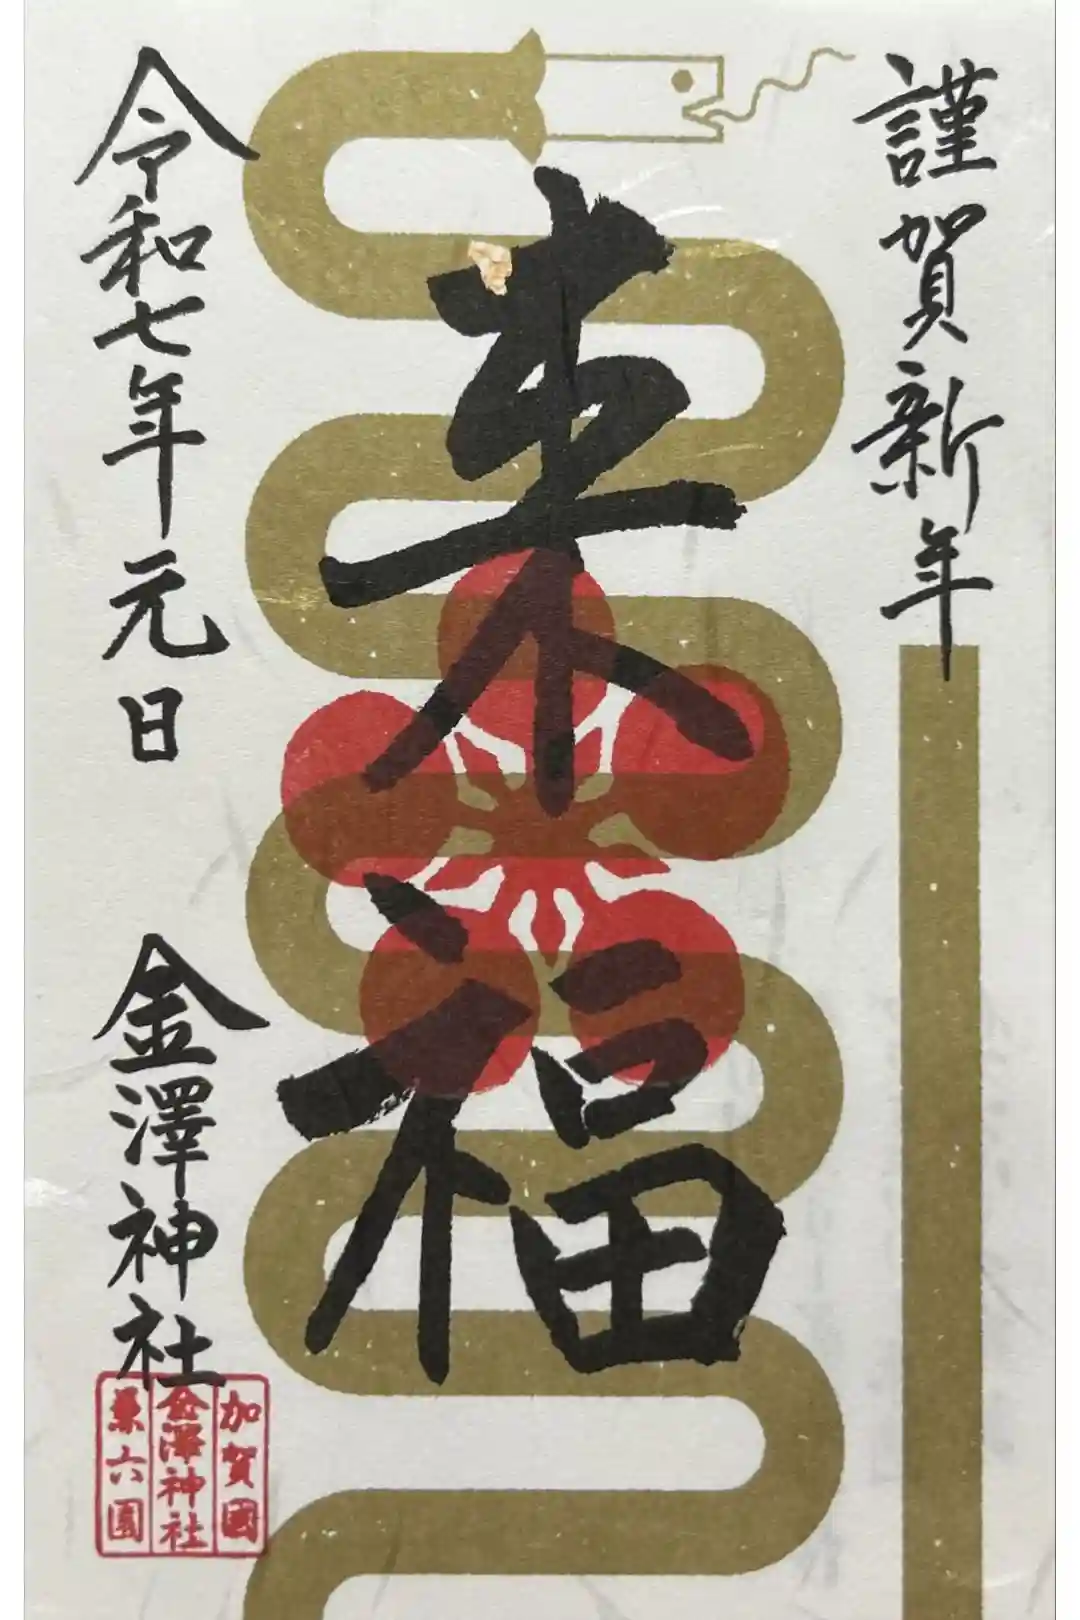 謹賀新年
来福
令和七年元日
金澤神社
加賀國
金澤神社
兼六園